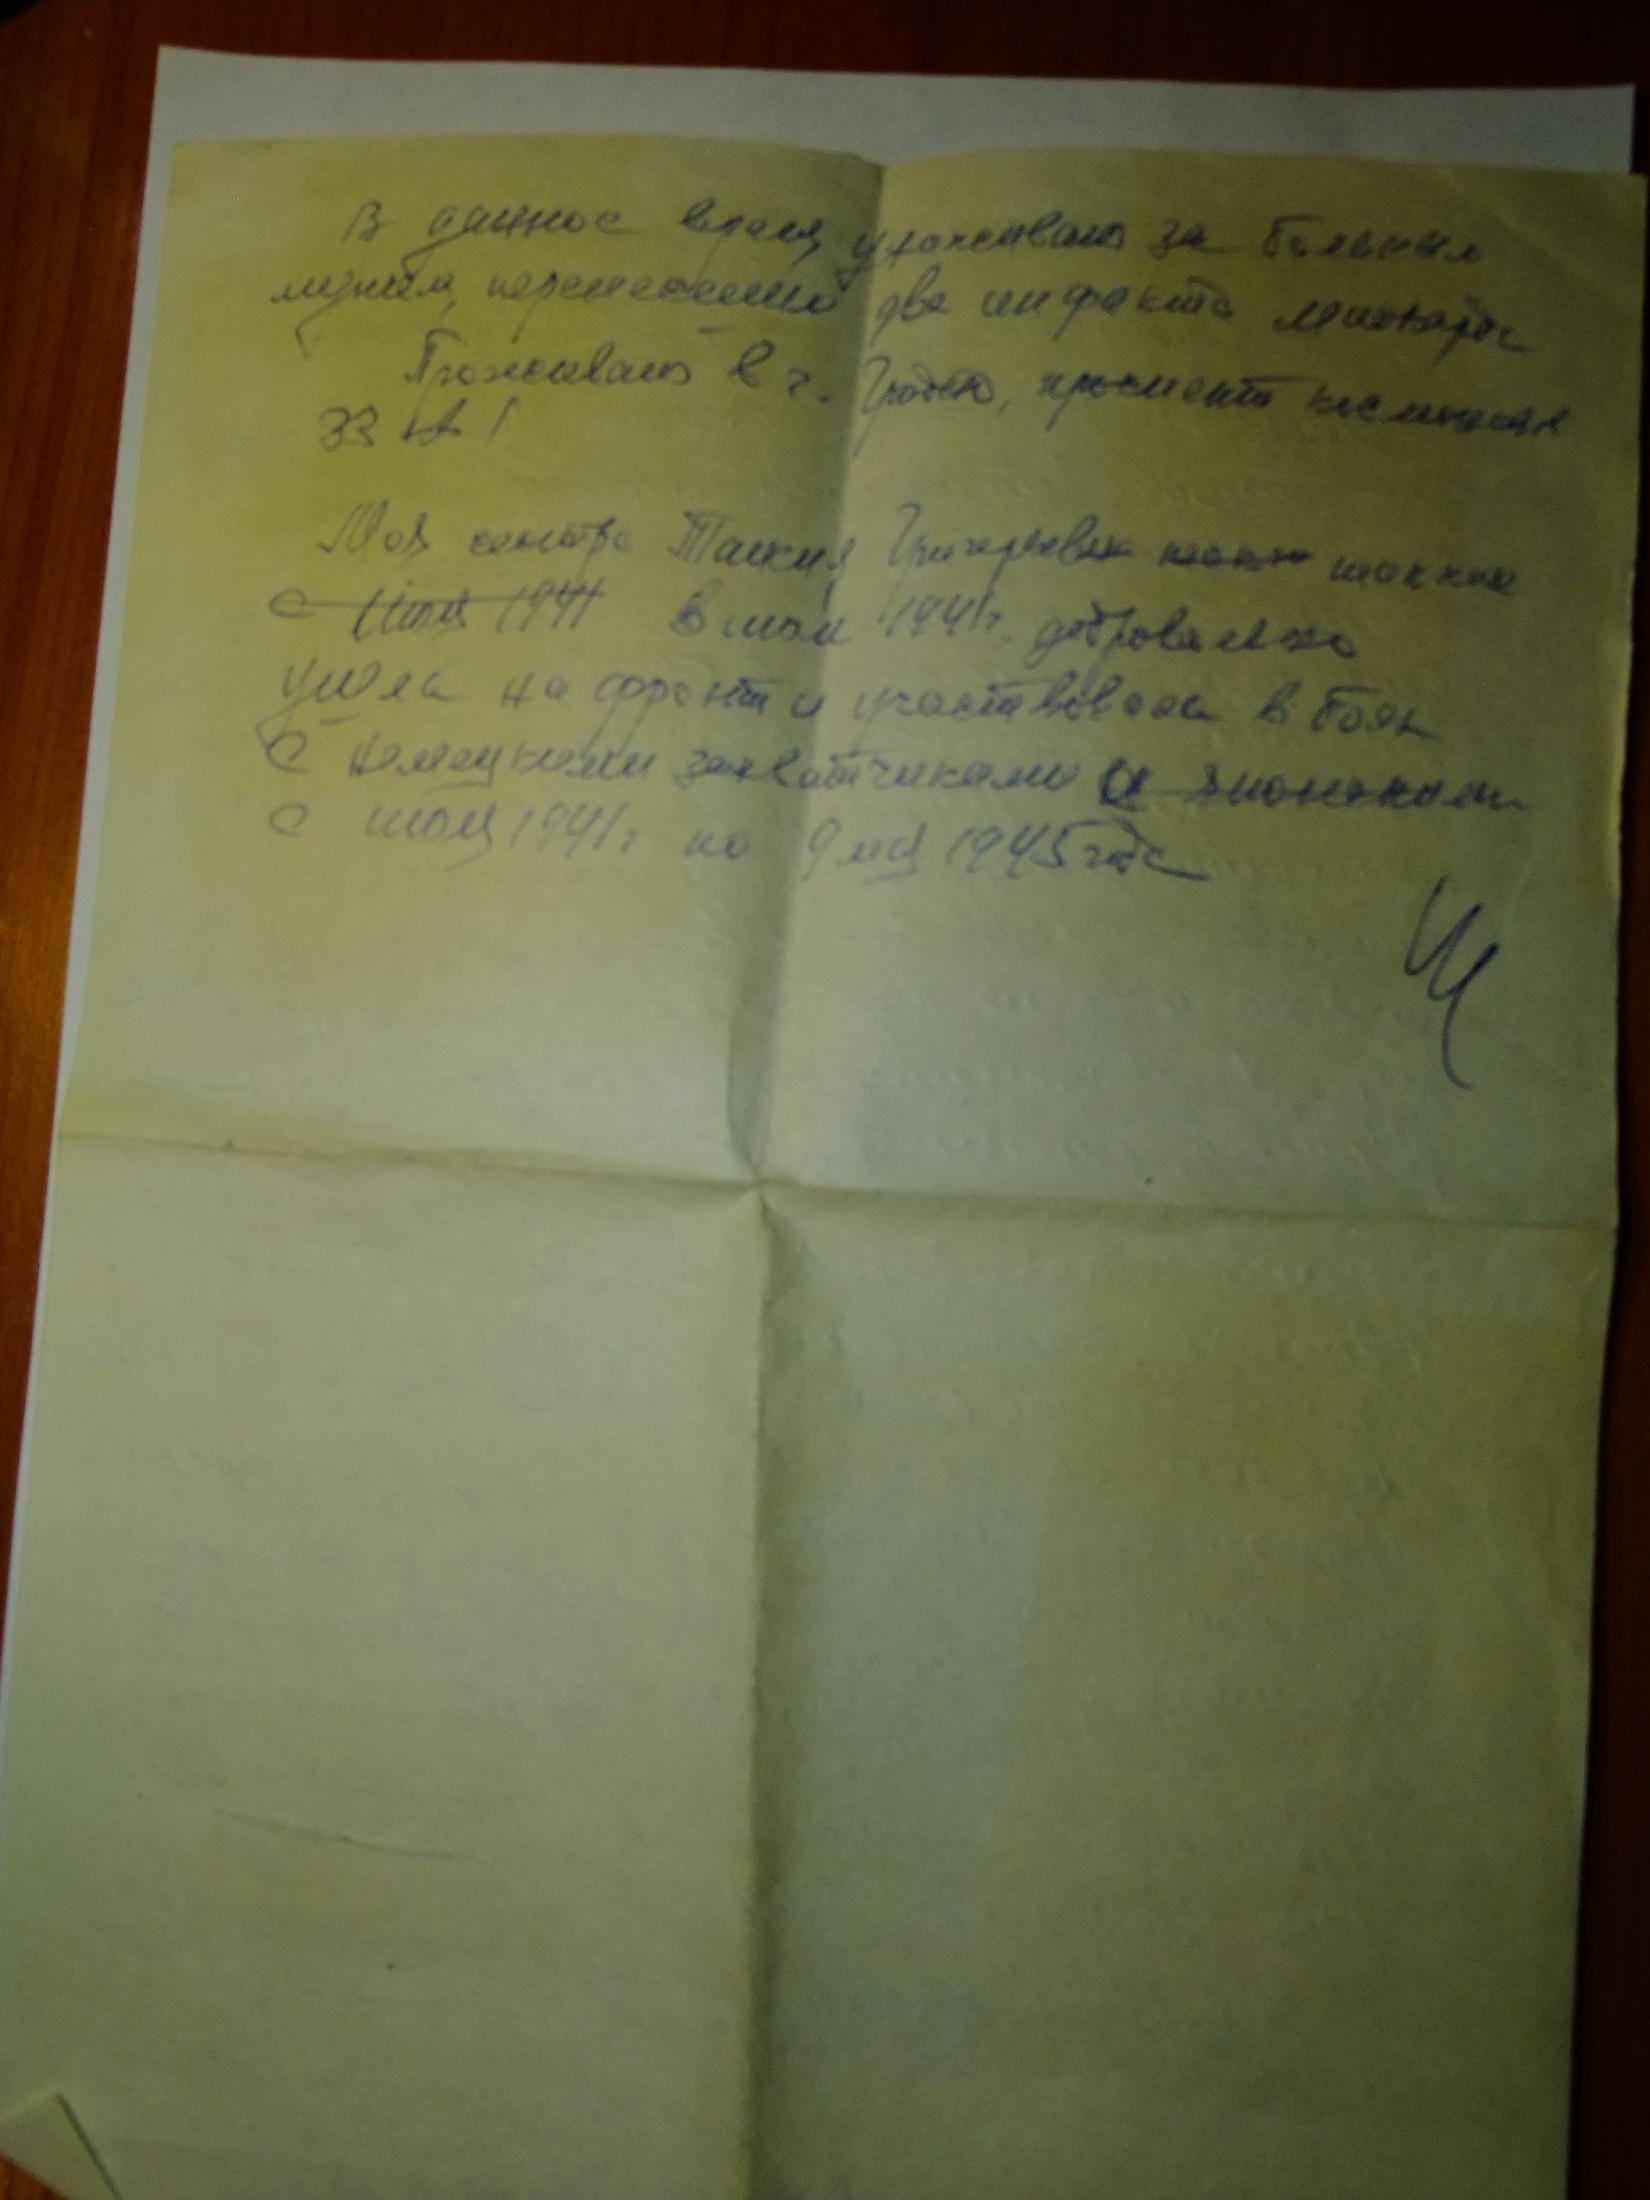 В данное время ухаживаю за больным
мужем, перенесшем два инфаркта миокарда
Проживаю в г. Гродно, проспект космонавтов
33 кв 1
Моя сестра Таисия Григорьевна также
С июля 1941 В июле 1941г. добровольно
ушла на фронт и участвовала в боях
С немецкими захватчиками и японскими
С июля 1941г по 9 мая 1945 года